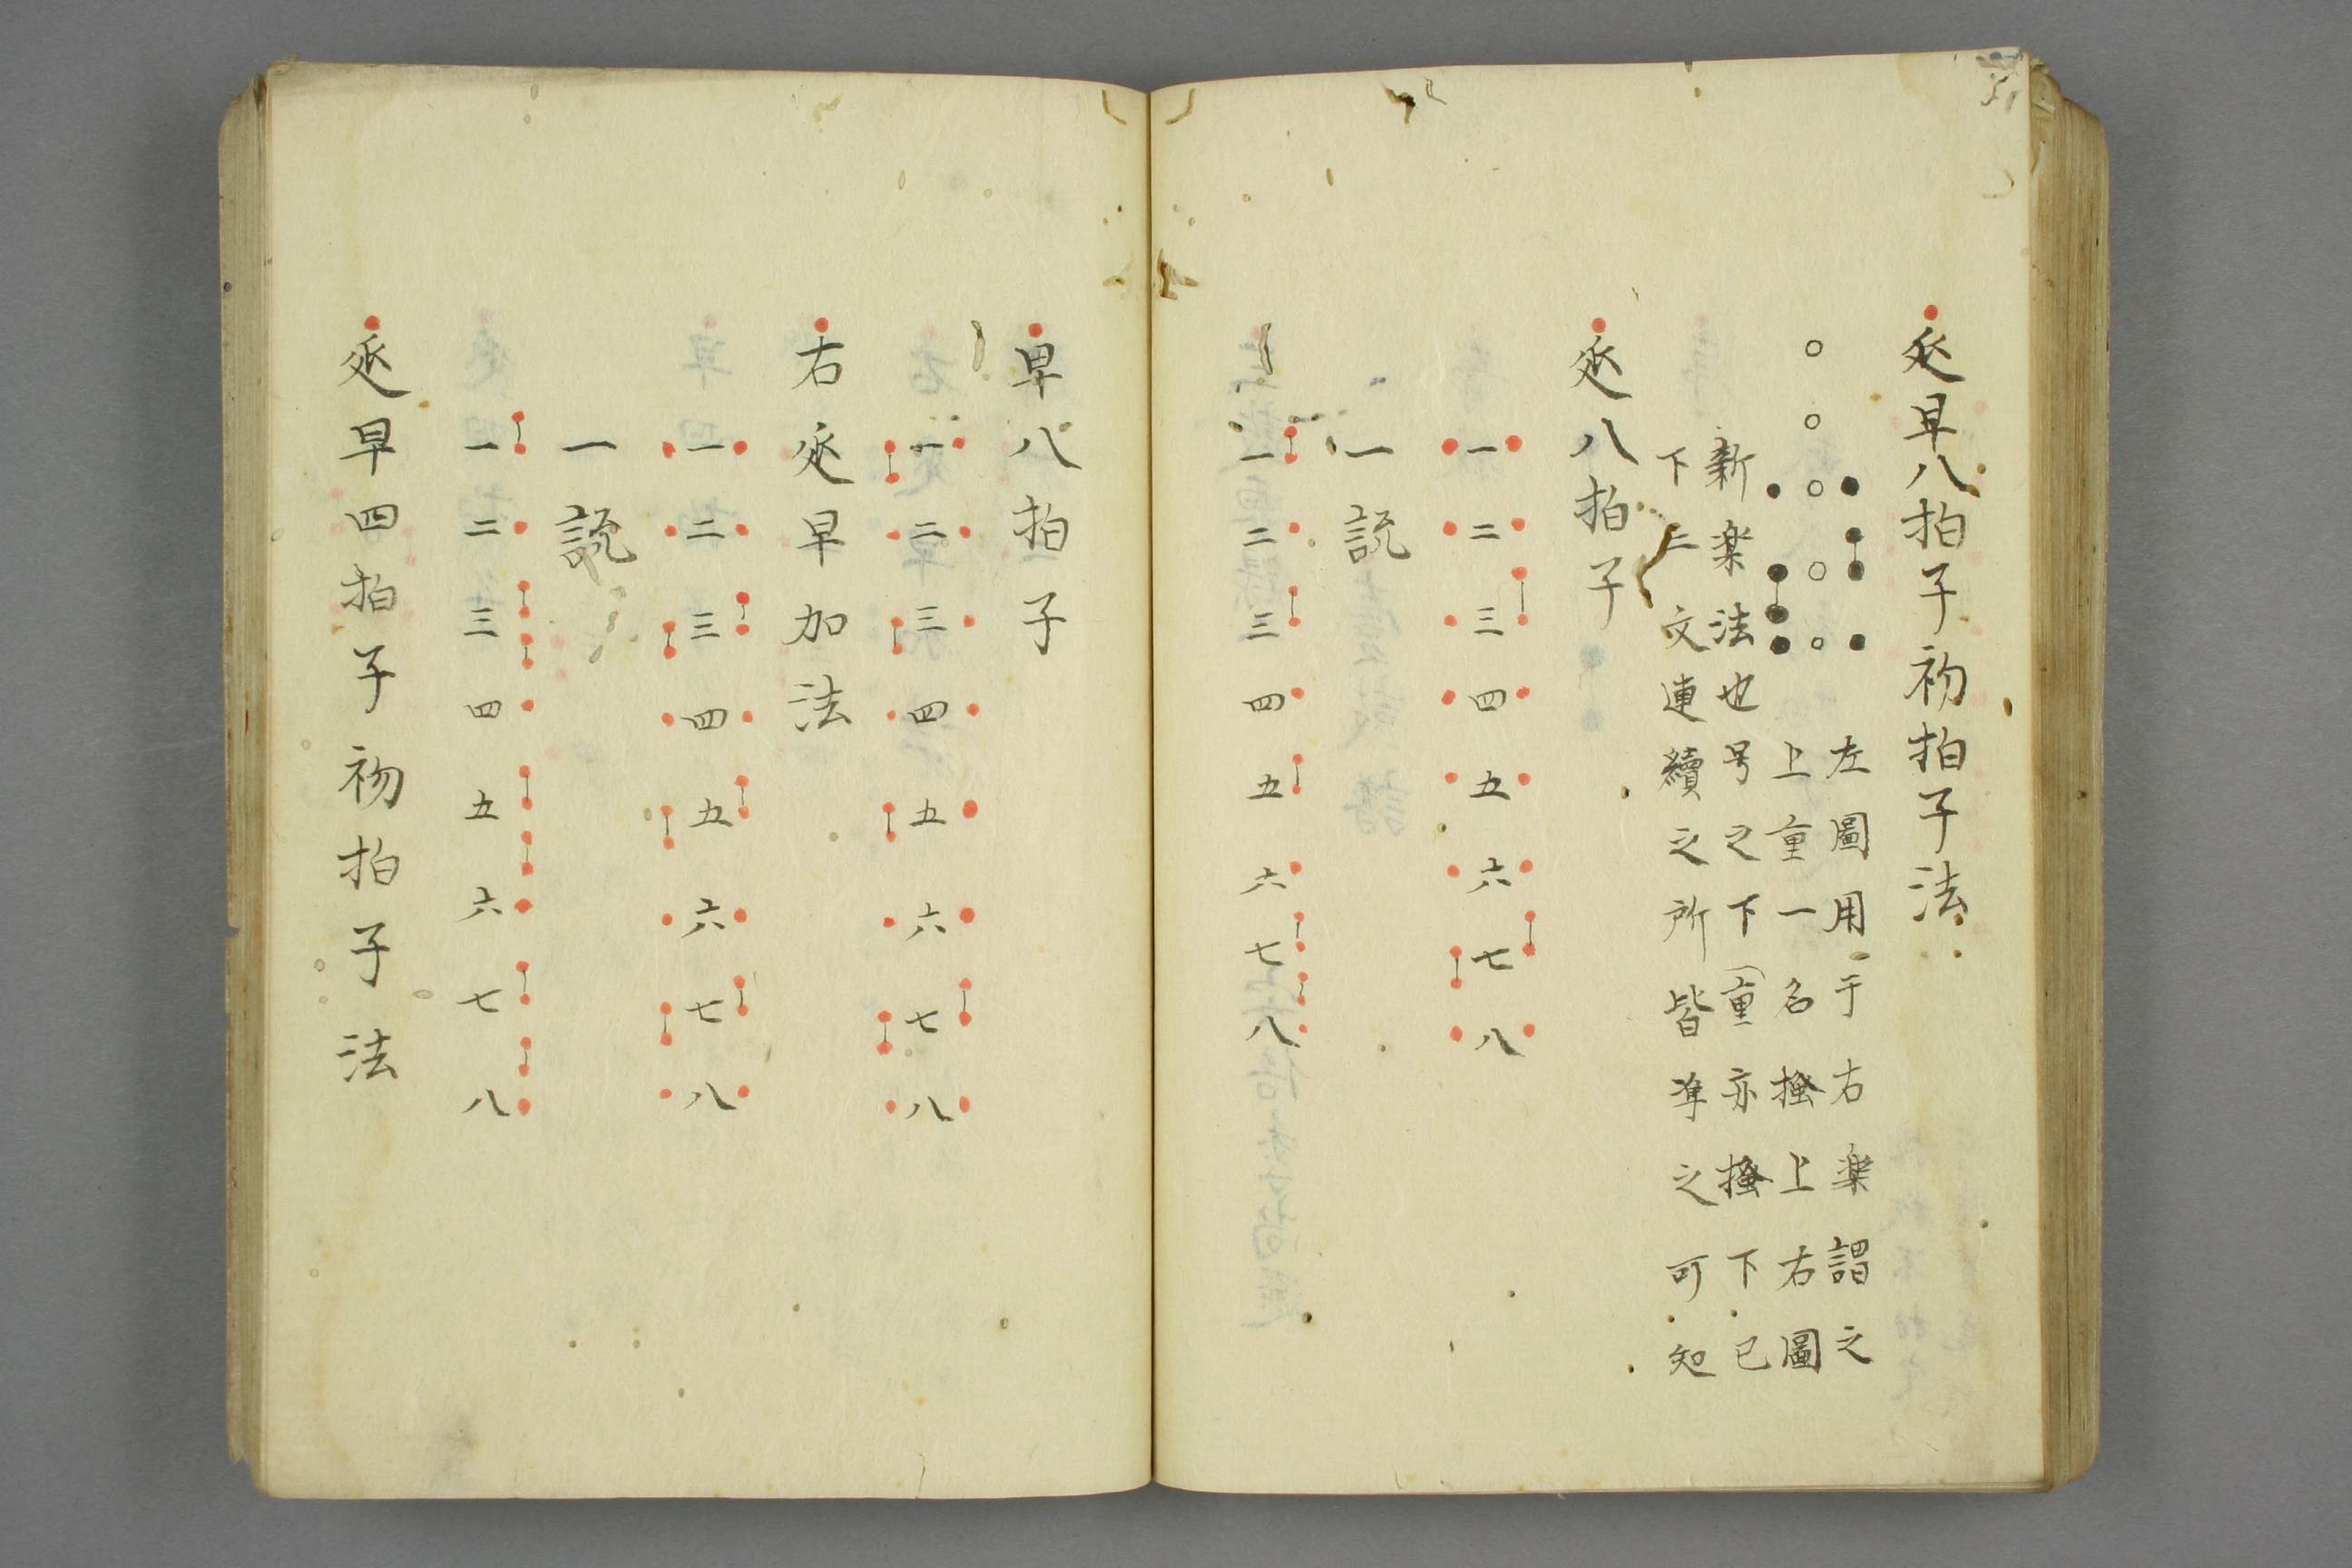 延早八拍子初拍子法
左圖用于右楽謂之
上重一名搔上右圖
新楽法也号之下重亦搔下已
下三文連續之所皆准之可知
延八拍子
一二三四五六七八
一説
一二三四五六七八
早八拍子
一二三四五六七八
右延早加法
一二三四五六七八
一説
一二三四五六七八
延早四拍子初拍子法